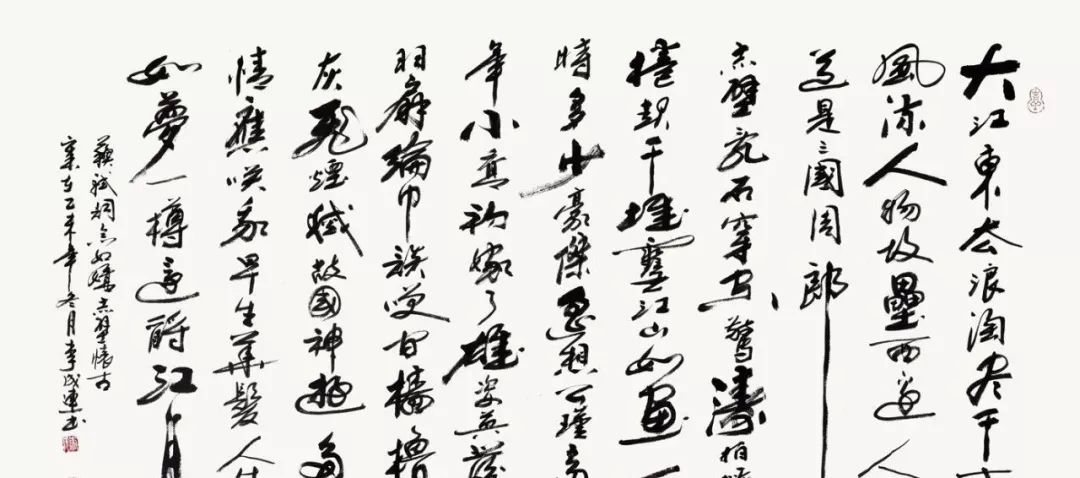 大江東去浪淘尽千
風流人物故壘西邊人
道是三國周郎
赤壁亂石穿空驚濤拍
捲起千堆雪江山如畫一
時多少豪傑遙想公瑾當
年小喬初嫁了雄姿英發
羽扇綸巾談笑間檣櫓
灰飛煙滅故國神遊多
情應笑我早生華髮人生
如夢一樽還酹江月
蘇軾詞念奴嬌赤壁懷古
歲在乙未年冬月李成連書